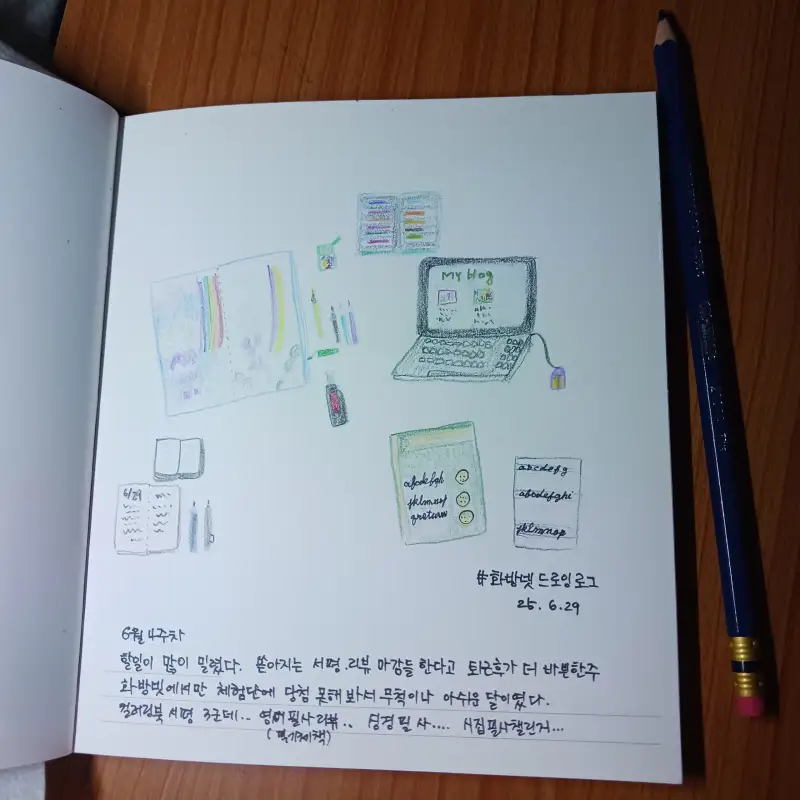 My blog
6/29
abcdefgh
jklmnop
qrstuvw
abcdefg
abcdefghi
jklmnop
#화방넷 드로잉로그
25. 6. 29
6월 4주차
할일이 많이 밀렸다. 쏟아지는 서평.리뷰 마감들 한다고 퇴근후가 더 바쁜한주
화방넷에서만 체험단에 당첨 못해봐서 무척이나 아쉬운 달이였다.
컬러링북 서평 3군데.. 영어필사리뷰.. 성경필사.... 시집필사챌린지...
(필기체책)